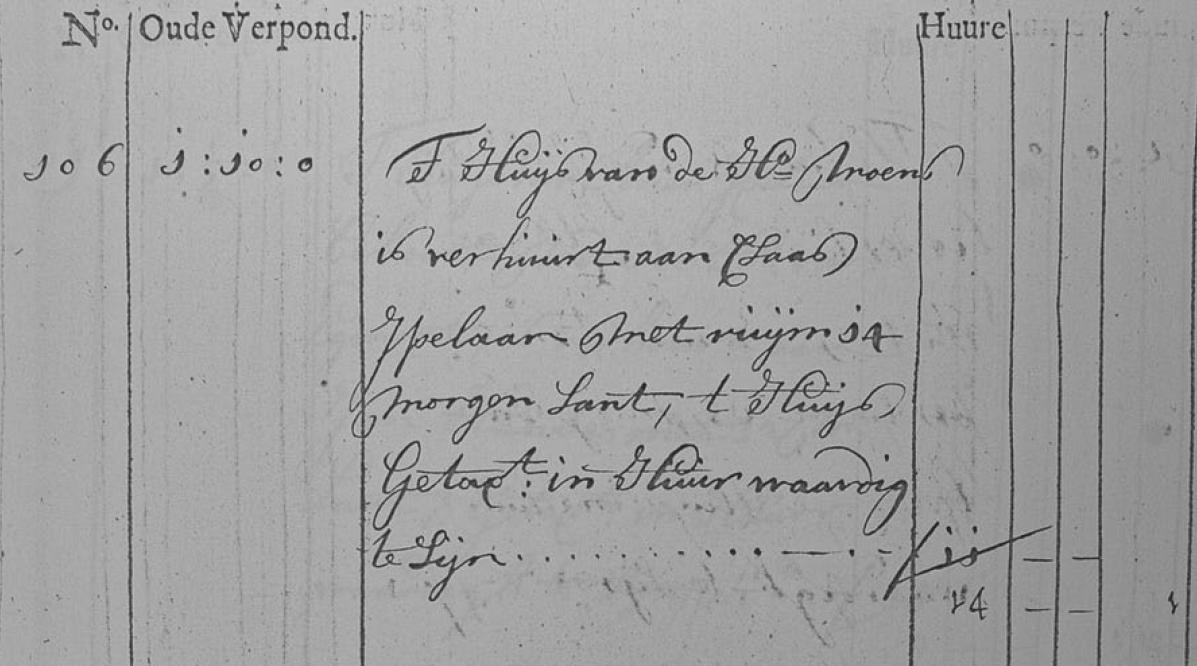 No. Oude Verpond. Huure
106 1:10:0 T Huijs van de Hr Moens
is verhuurt aan Claas
Ipelaar met ruijm 14
morgen Lant, t Huijs
Getaxt: in Huur waardig
te Sijn . . . . . . . . . . . . — . - 11 — —
14 — —